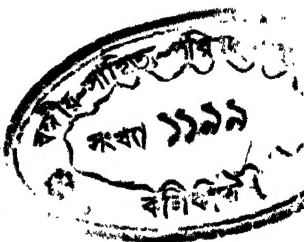 বঙ্গীয়-সাহিত্য-পরিষদ
সংখ্যা ১১৯৯
কলিকাতা